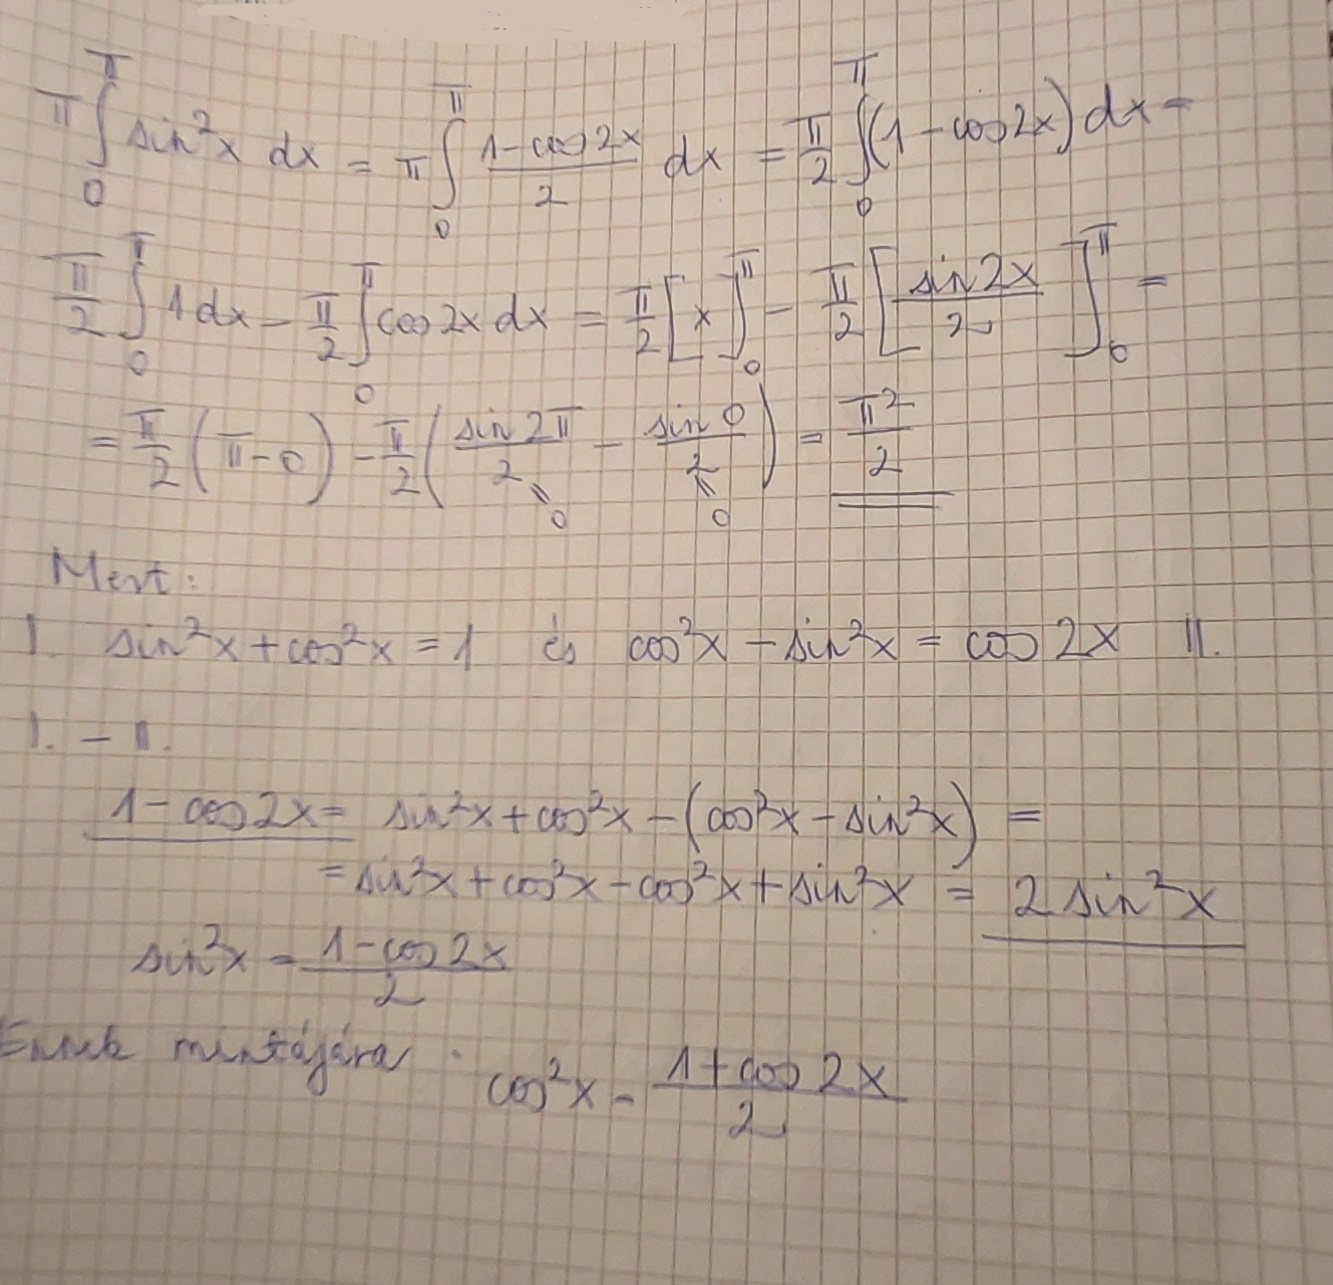 π∫₀^π sin²x dx = π∫₀^π (1-cos2x)/2 dx = π/2 ∫₀^π (1-cos2x) dx =
π/2 ∫₀^π 1 dx - π/2 ∫₀^π cos 2x dx = π/2 [x]₀^π - π/2 [sin2x/2]₀^π =
= π/2 (π-0) - π/2 (sin 2π/2 - sin 0/2) = π²/2
= 0 = 0
Mert:
I. sin²x + cos²x = 1 és cos²x - sin²x = cos 2x II.
I. - II.
1-cos2x = sin²x + cos²x - (cos²x - sin²x) =
= sin²x + cos²x - cos²x + sin²x = 2 sin²x
sin²x = (1-cos2x)/2
Ennek mintájára:
cos²x = (1+cos 2x)/2